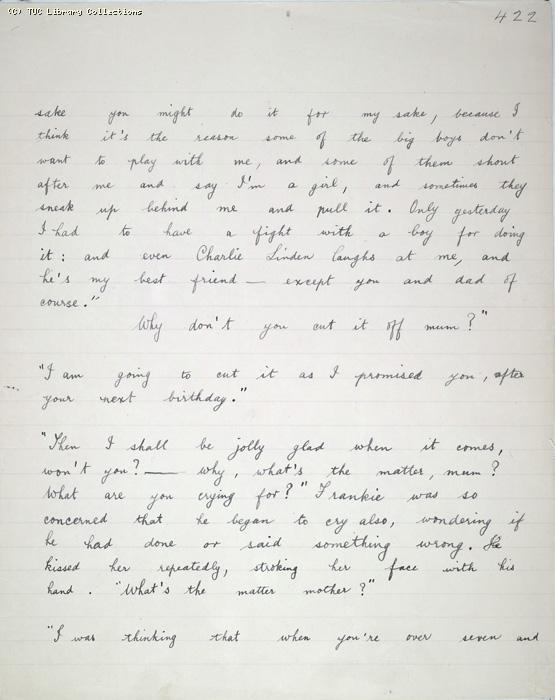 (C) TUC Library Collections
422
sake you might do it for my sake, because I
think it's the reason some of the big boys don't
want to play with me, and some of them shout
after me and say I'm a girl, and sometimes they
sneak up behind me and pull it. Only yesterday
I had to have a fight with a boy for doing
it: and even Charlie Linden laughs at me, and
he's my best friend — except you and dad of
course."
Why don't you cut it off mum?"
"I am going to cut it as I promised you, after
your next birthday."
"Then I shall be jolly glad when it comes,
won't you? — why, what's the matter, mum?
What are you crying for?" Frankie was so
concerned that he began to cry also, wondering if
he had done or said something wrong. He
kissed her repeatedly, stroking her face with his
hand. "What's the matter mother?"
"I was thinking that when you're over seven and